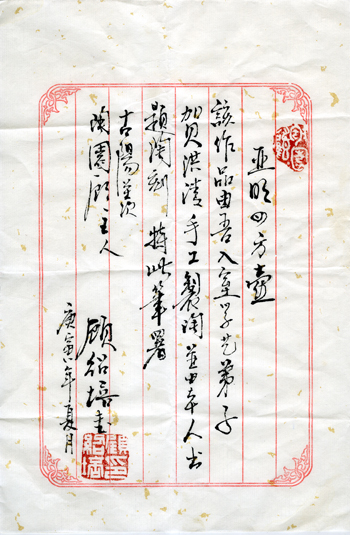 亚明四方壶
該作品由吾入室学艺弟子
贺洪清手工製陶並由本人书
题陶刻 特此筆署
古陽羡
陶園顾主人
顾绍培书
庚寅年夏月